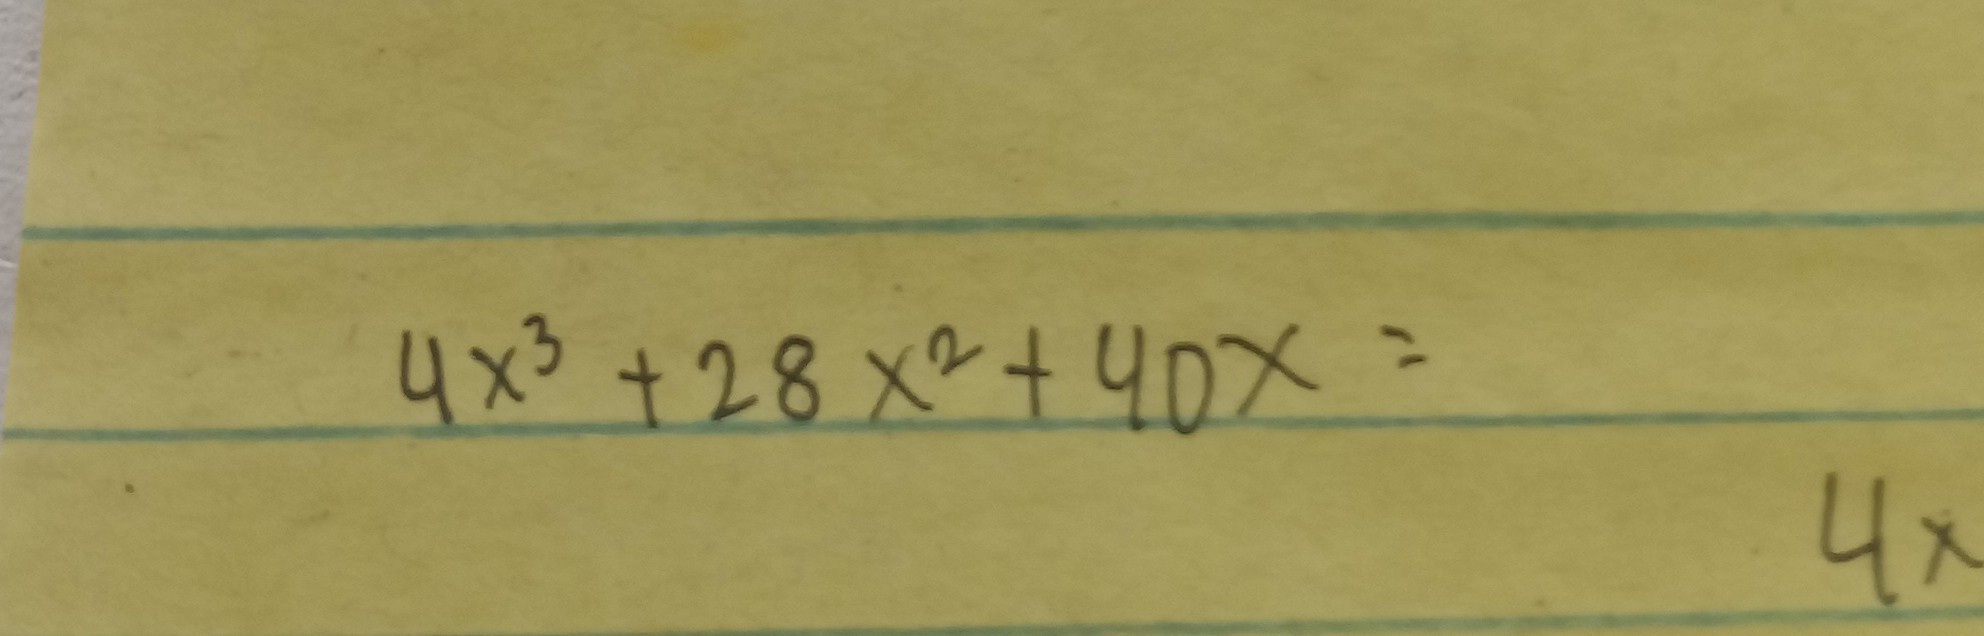 4x³ + 28x² + 40x =
4x